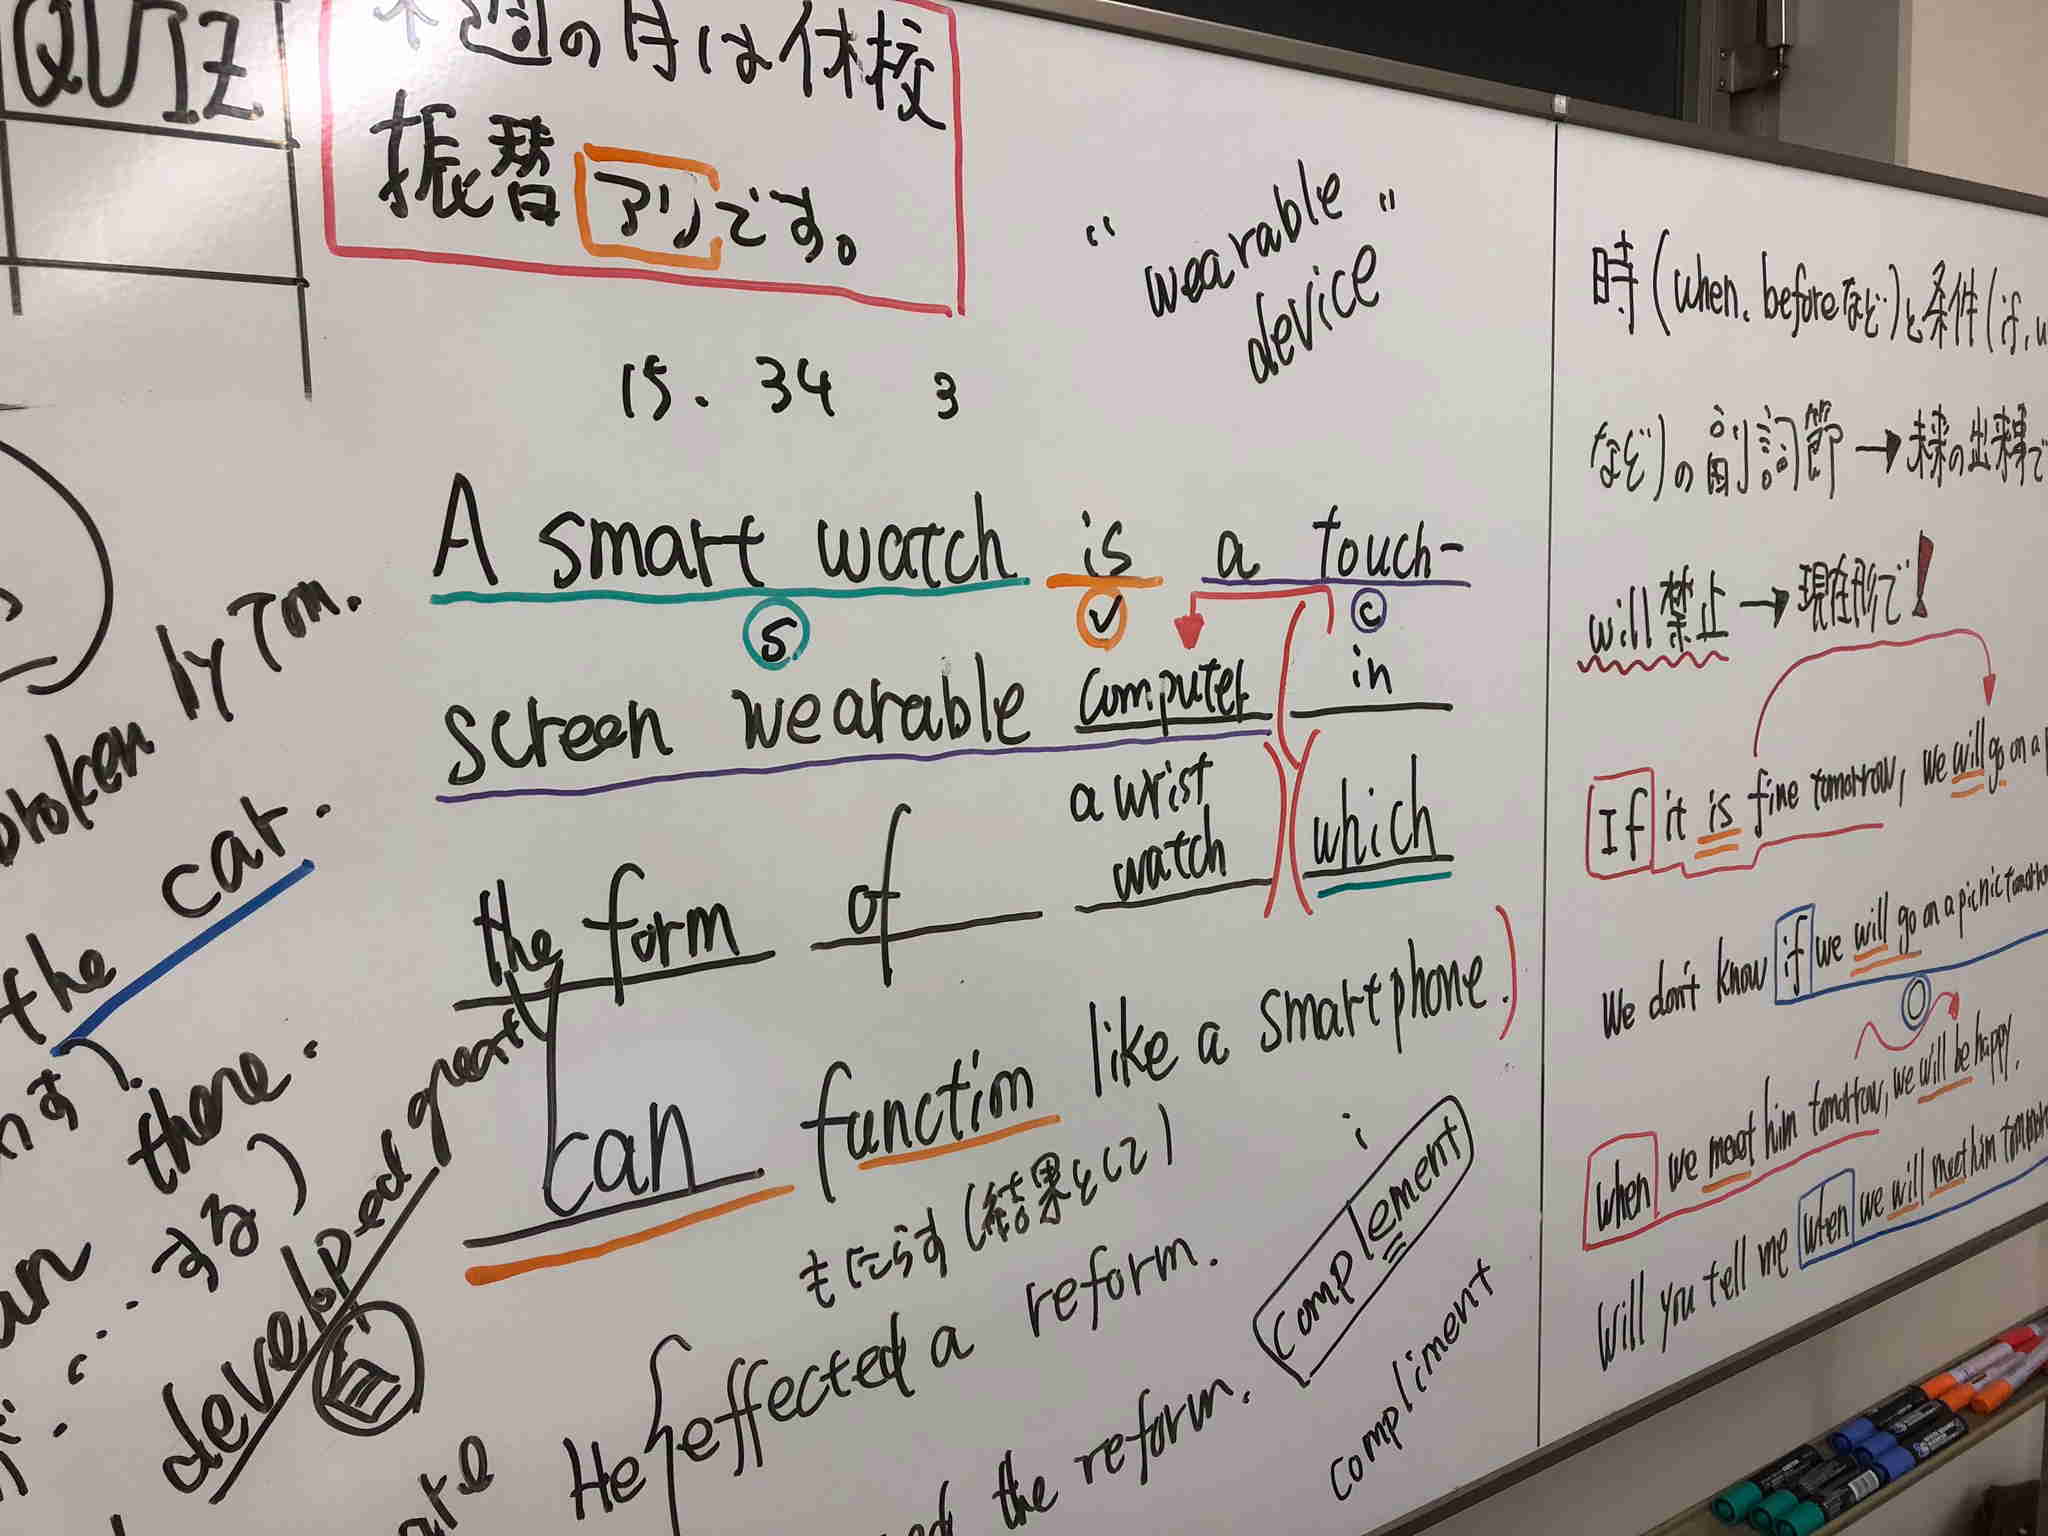 QUIZ
週の月は休校
振替アリです。
"wearable device"
15. 34 3
A smart watch is a touch-
S V C
screen wearable computer in
the form of a wrist watch which
can function like a smartphone.
もたらす(結果として)
He effected a reform.
the reform.
i
complement
compliment
broken by Tom.
the car.
there.
する)
developed greatly
自
時(when. beforeなど)と条件(if,
など)の副詞節→未来の出来事で
will禁止→現在形で!
If it is fine tomorrow, we will go on a
We don't know if we will go on a picnic
When we meet him tomorrow, we will be happy.
Will you tell me when we will meet him